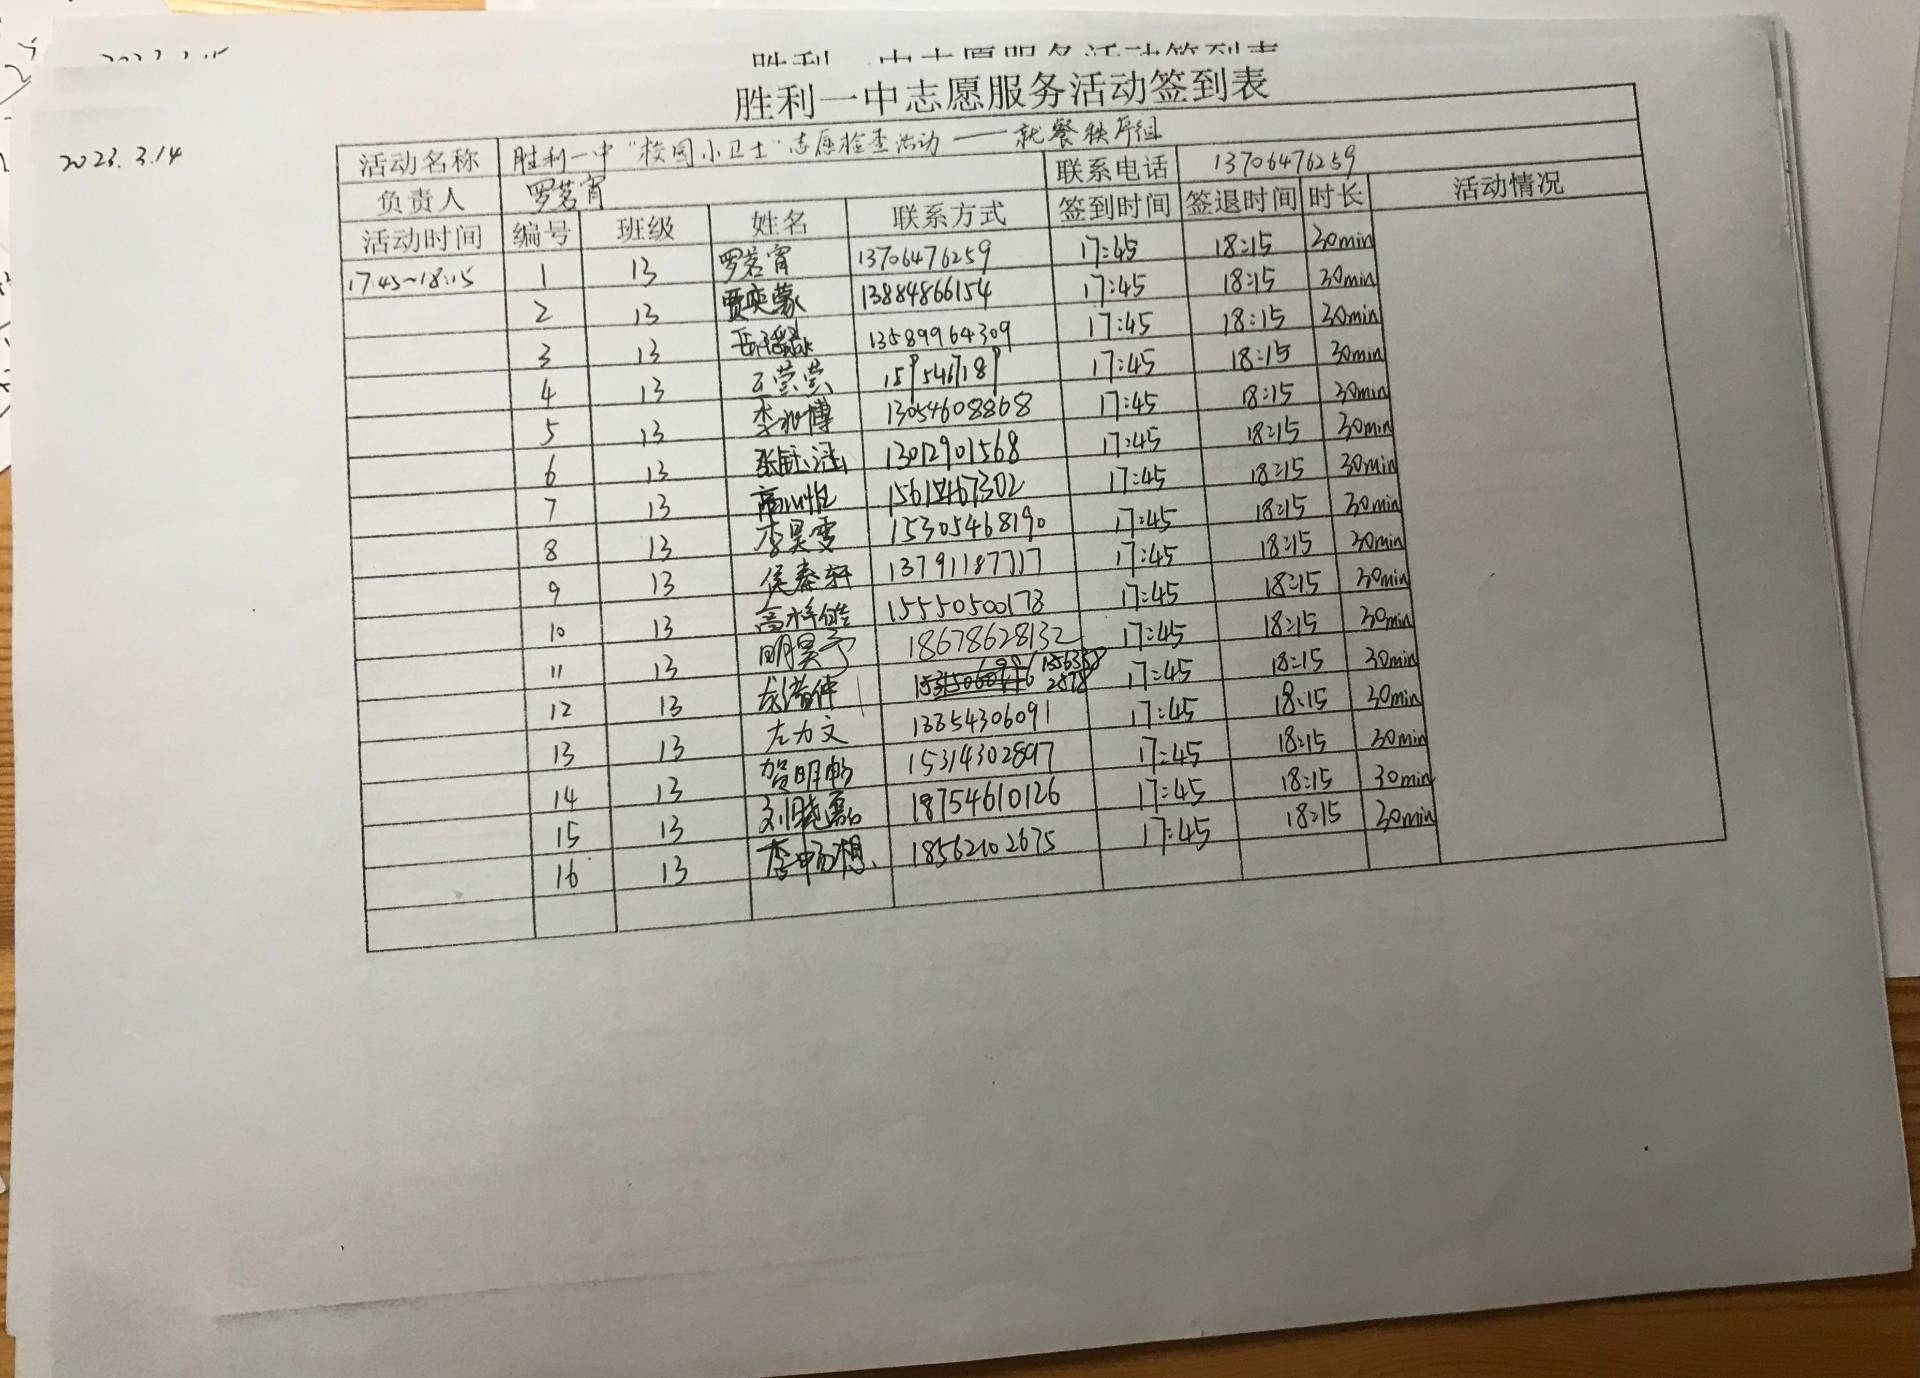 2023.3.14
胜利一中志愿服务活动签到表
活动名称 胜利一中"校园小卫士"志愿检查活动——就餐秩序组
负责人 罗茗宵 联系电话 13706476259
活动时间 编号 班级 姓名 联系方式 签到时间 签退时间 时长 活动情况
17:45~18:15 1 13 罗茗宵 13706476259 17:45 18:15 30min
2 13 贾奕蒙 13884866154 17:45 18:15 30min
3 13 13589964309 17:45 18:15 30min
4 13 王萱萱 17:45 18:15 30min
5 13 李兆博 13054608868 17:45 18:15 30min
6 13 张钰涵 13012901568 17:45 18:15 30min
7 13 17:45 18:15 30min
8 13 李昊雯 15305468190 17:45 18:15 30min
9 13 侯秦轩 13791187717 17:45 18:15 30min
10 13 15550500173 17:45 18:15 30min
11 13 明昊予 18678628132 17:45 18:15 30min
12 13 17:45 18:15 30min
13 13 左力文 13854306091 17:45 18:15 30min
14 13 贺明畅 15314302897 17:45 18:15 30min
15 13 刘晓磊 18754610126 17:45 18:15 30min
16 13 李中想 18562102675 17:45 18:15 30min